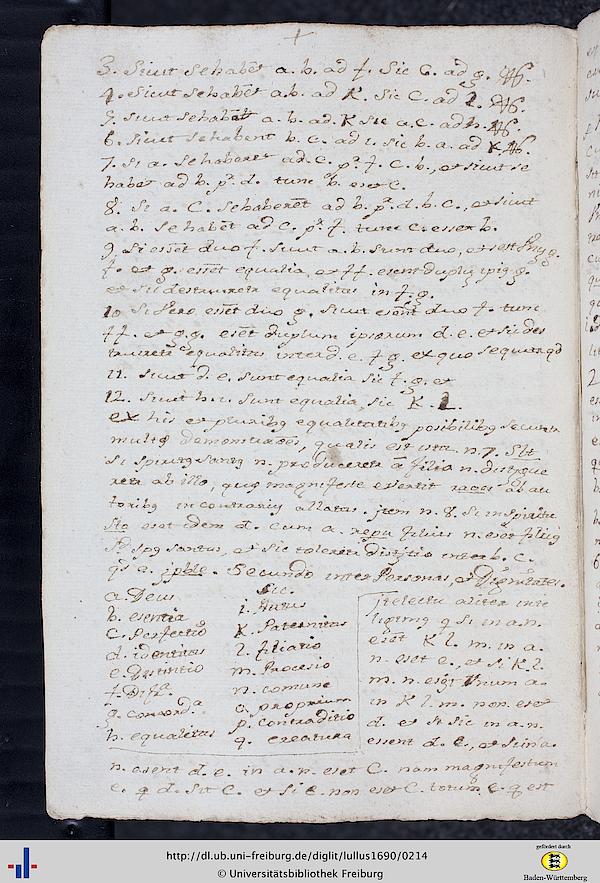 3. Sicut se habet a. b. ad f. sic C. ad g.
4. Sicut se habet a.b. ad K. sic C. ad l.
5. Sicut se habet a. b. ad K sic a.c. ad h.
6. Sicut se habent b. c. ad i. sic b. a. ad K.
7. Si a. se haberet ad. C. pr. f. C. b., et sicut se
habet ad b. pr. d. tunc b. eset C.
8. Si a. C. se haberet ad b. pr. d. b. C., et sicut
a. b. se habet ad C. pr. f. tunc C. esset b.
9. Si esset duo f. sicut a. b. sunt duo, et est g.
f. et g. esset equalia, et f f. esent duplum g.
et sic destrueretur equalitas in f. g.
10 Si vero esset duo g. sicut esent duo f. tunc
f f. et g. g. eset duplum ipsorum d. e. et sic des
trueretur equalitas inter d. e. f g. ex quo sequitur qd
11. Sicut d. e. sunt equalia sic f. g. et
12. Sicut h. i. sunt equalia sic K. l.
ex his et pluribus equalitatibus posibilibus
multe demonstraces, qualis est ista n. 7.
Si spiritus santus n. produceretur a filio n.
retur ab illo, magnifeste ab au
toribus in contrarium allatas. jtem n. 8. Si in spiritu
sto eset idem d. cum a. filius n. eset filius
sed sps santus, et sic toleretur distitio inter b. c.
qs e. jpble. Secundo inter Personas, et Dignitates.
sic.
a. Deus
b. esentia
C. Perfectio
d. identitas
e. Distintio
f. Difra.
g. concorda.
h. equalitas
i. Autus
K. Paternitas
l. filiatio
m. Procesio
n. comune
o. proprium
p. contraditio
q. creatura
jtelectu aliter inte
ligimus q si in a. n.
eset K l. m. in a.
n. eset e., et si K. l.
m. n. eset unum a.
in K l. m. non. eset
d. et si sic in a. n.
essent d. e., et si in a.
n. esent d. e. in a. n. eset C. nam magnifestum
e. q d. sit C. et si e. non eset C. totum e. q est
http://dl.ub.uni-freiburg.de/diglit/lullus1690/0214
© Universitätsbibliothek Freiburg
gefördert durch
Baden-Württemberg